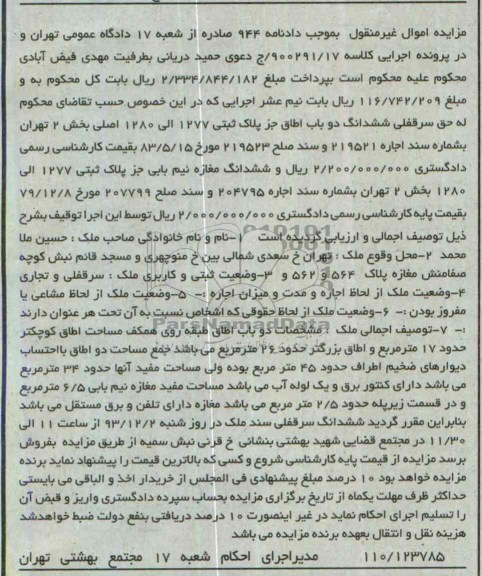 مزایده اموال غیرمنقول بموجب دادنامه ۹۴۴ صادره از شعبه ۱۷ دادگاه عمومی تهران و
در پرونده اجرایی کلاسه ۹۰۰۲۹۱/۱۷/ج دعوی حمید دریانی بطرفیت مهدی فیض آبادی
محکوم علیه محکوم است بپرداخت مبلغ ۲/۳۳۴/۸۴۴/۱۸۲ ریال بابت کل محکوم به و
مبلغ ۱۱۶/۷۴۲/۲۰۹ ریال بابت نیم عشر اجرایی که در این خصوص حسب تقاضای محکوم
له حق سرقفلی ششدانگ دو باب اطاق جز پلاک ثبتی ۱۲۷۷ الی ۱۲۸۰ اصلی بخش ۲ تهران
بشماره سند اجاره ۲۱۹۵۲۱ و سند صلح ۲۱۹۵۲۳ مورخ ۸۳/۵/۱۵ بقیمت کارشناسی رسمی
دادگستری ۲/۲۰۰/۰۰۰/۰۰۰ ریال و ششدانگ مغازه نیم بابی جز پلاک ثبتی ۱۲۷۷ الی
۱۲۸۰ بخش ۲ تهران بشماره سند اجاره ۲۰۴۷۹۵ و سند صلح ۲۰۷۷۹۹ مورخ ۷۹/۱۲/۸
بقیمت پایه کارشناسی رسمی دادگستری ۲/۰۰۰/۰۰۰/۰۰۰ ریال توسط این اجرا توقیف بشرح
ذیل توصیف اجمالی و ارزیابی گردیده است ۱-نام و نام خانوادگی صاحب ملک : حسین ملا
محمد ۲-محل وقوع ملک : تهران خ سعدی شمالی بین خ منوچهری و مسجد قائم نبش کوچه
صفامنش مغازه پلاک ۵۶۴ و ۵۶۲ و ۳-وضعیت ثبتی و کاربری ملک : سرقفلی و تجاری
۴-وضعیت ملک از لحاظ اجاره و مدت و میزان اجاره :– ۵-وضعیت ملک از لحاظ مشاعی یا
مفروز بودن :– ۶-وضعیت ملک از لحاظ حقوقی که اشخاص نسبت به آن تحت هر عنوان دارند
:– ۷-توصیف اجمالی ملک : مشخصات دو باب اطاق طبقه روی همکف مساحت اطاق کوچکتر
حدود ۱۷ مترمربع و اطاق بزرگتر حدود ۲۶ مترمربع می باشد جمع مساحت دو اطاق بااحتساب
دیوارهای ضخیم اطراف حدود ۴۵ متر مربع بوده ولی مساحت مفید آنها حدود ۳۴ مترمربع
می باشد دارای کنتور برق و یک لوله آب می باشد مساحت مفید مغازه نیم بابی ۶/۵ مترمربع
و در قسمت زیرپله حدود ۲/۵ متر مربع می باشد مغازه دارای تلفن و برق مستقل می باشد
بنابراین مقرر گردید ششدانگ سرقفلی سند ملک در روز شنبه ۹۳/۱۲/۲ از ساعت ۱۱ الی
۱۱/۳۰ در مجتمع قضایی شهید بهشتی بنشانی خ قرنی نبش سمیه از طریق مزایده بفروش
برسد مزایده از قیمت پایه کارشناسی شروع و کسی که بالاترین قیمت را پیشنهاد نماید برنده
مزایده خواهد بود ۱۰ درصد مبلغ پیشنهادی فی المجلس از خریدار اخذ و الباقی می بایستی
حداکثر ظرف مهلت یکماه از تاریخ برگزاری مزایده بحساب سپرده دادگستری واریز و قبض آن
را تسلیم اجرای احکام نماید در غیر اینصورت ۱۰ درصد دریافتی بنفع دولت ضبط خواهدشد
هزینه نقل و انتقال بعهده برنده مزایده می باشد
۱۱۰/۱۲۳۷۸۵ مدیراجرای احکام شعبه ۱۷ مجتمع بهشتی تهران
ParsNamadData